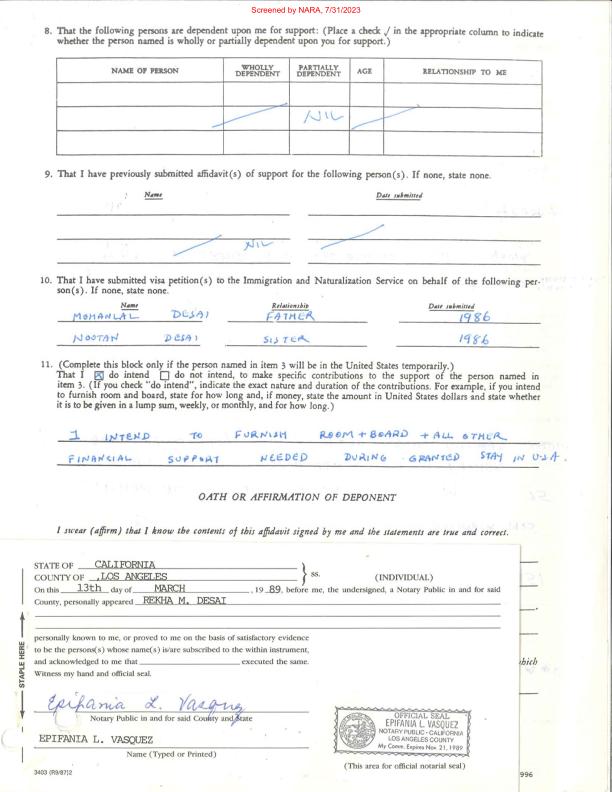 Screened by NARA, 7/31/2023
8. That the following persons are dependent upon me for support: (Place a check √ in the appropriate column to indicate
whether the person named is wholly or partially dependent upon you for support.)
NAME OF PERSON WHOLLY DEPENDENT PARTIALLY DEPENDENT AGE RELATIONSHIP TO ME
NIL
9. That I have previously submitted affidavit(s) of support for the following person(s). If none, state none.
Name Date submitted
NIL
10. That I have submitted visa petition(s) to the Immigration and Naturalization Service on behalf of the following per-
son(s). If none, state none.
Name Relationship Date submitted
MOHANLAL DESAI FATHER 1986
NOOTAN DESAI SISTER 1986
11. (Complete this block only if the person named in item 3 will be in the United States temporarily.)
That I ☒ do intend ☐ do not intend, to make specific contributions to the support of the person named in
item 3. (If you check "do intend", indicate the exact nature and duration of the contributions. For example, if you intend
to furnish room and board, state for how long and, if money, state the amount in United States dollars and state whether
it is to be given in a lump sum, weekly, or monthly, and for how long.)
I INTEND TO FURNISH ROOM + BOARD + ALL OTHER
FINANCIAL SUPPORT NEEDED DURING GRANTED STAY IN USA.
OATH OR AFFIRMATION OF DEPONENT
I swear (affirm) that I know the contents of this affidavit signed by me and the statements are true and correct.
STATE OF CALIFORNIA
COUNTY OF LOS ANGELES } ss. (INDIVIDUAL)
On this 13th day of MARCH, 19 89, before me, the undersigned, a Notary Public in and for said
County, personally appeared REKHA M. DESAI
personally known to me, or proved to me on the basis of satisfactory evidence
to be the persons(s) whose name(s) is/are subscribed to the within instrument,
and acknowledged to me that executed the same.
hich
Witness my hand and official seal.
STAPLE HERE
Epifania L. Vasquez
Notary Public in and for said County and State
EPIFANIA L. VASQUEZ
Name (Typed or Printed)
OFFICIAL SEAL
EPIFANIA L. VASQUEZ
NOTARY PUBLIC - CALIFORNIA
LOS ANGELES COUNTY
My Comm. Expires Nov. 21, 1989
(This area for official notarial seal)
3403 (R9/87)2
996